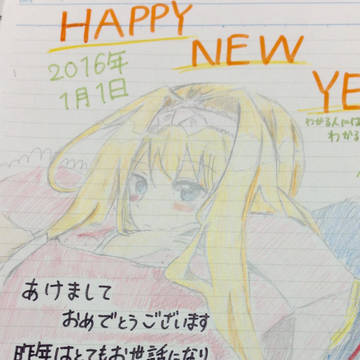 HAPPY
NEW
YE
2016年
1月1日
わかる人には
わかる
あけまして
おめでとうございます
昨年はとてもお世話になり